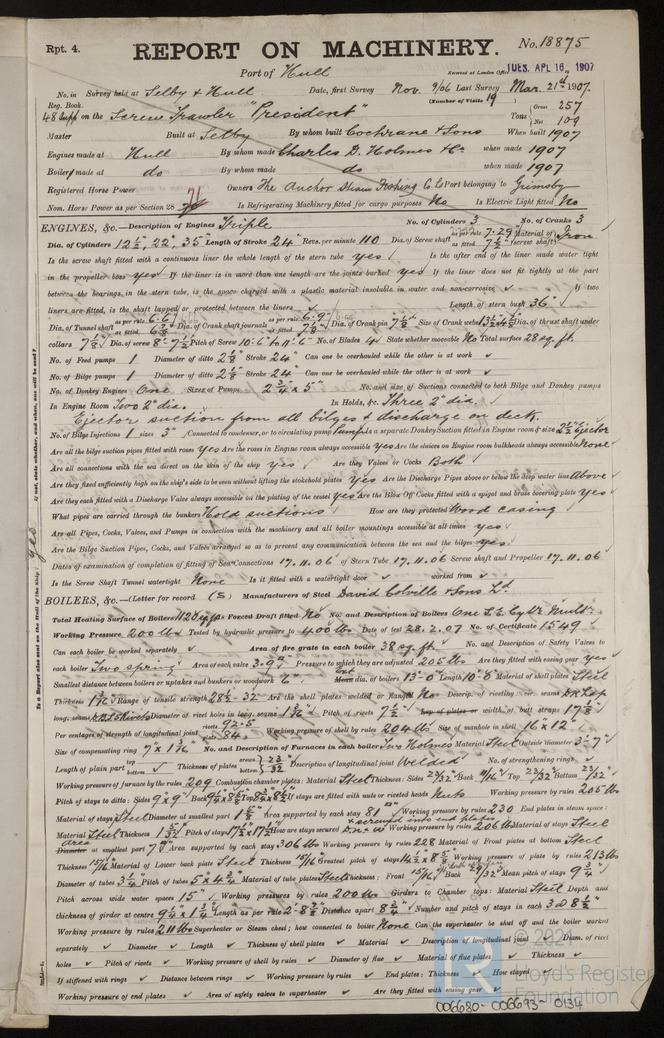 Rpt. 4.
REPORT ON MACHINERY.
No. 18875
Port of Hull
Received at London Office TUES. APL 16, 1907
No. in Survey held at Selby & Hull Date, first Survey Nov. 9/06 Last Survey Mar. 21st 1907.
Reg. Book. (Number of Visits 19)
48 Supp on the Screw Trawler "President" Tons Gross 257 Net 109
Master Built at Selby By whom built Cochrane & Sons When built 1907
Engines made at Hull By whom made Charles D. Holmes & Co when made 1907
Boilers made at do By whom made do when made 1907
Registered Horse Power Owners The Anchor Steam Fishing C. Ld Port belonging to Grimsby
Nom. Horse Power as per Section 28 71 Is Refrigerating Machinery fitted for cargo purposes No Is Electric Light fitted No
ENGINES, &c.—Description of Engines Triple No. of Cylinders 3 No. of Cranks 3
Dia. of Cylinders 12½, 22", 35" Length of Stroke 24" Revs. per minute 110 Dia. of Screw shaft as per rule 7.29 as fitted 7½" Material of screw shaft Iron
Is the screw shaft fitted with a continuous liner the whole length of the stern tube yes Is the after end of the liner made water tight
in the propeller boss yes If the liner is in more than one length are the joints burned yes If the liner does not fit tightly at the part
between the bearings in the stern tube, is the space charged with a plastic material insoluble in water and non-corrosive ✓ If two
liners are fitted, is the shaft lapped or protected between the liners ✓ Length of stern bush 36"
Dia. of Tunnel shaft as per rule 6.6 Dia. of Crank shaft journals as per rule 6.9 as fitted 7⅛ Dia. of Crank pin 7½ Size of Crank webs Dia. of thrust shaft under
collars 7⅛ Dia. of screw 8'-7½ Pitch of Screw 10'-6" to 11'-6" No. of Blades 4 State whether moveable No Total surface 28 sq. ft.
No. of Feed pumps 1 Diameter of ditto 2⅛ Stroke 24" Can one be overhauled while the other is at work ✓
No. of Bilge pumps 1 Diameter of ditto 2⅛ Stroke 24" Can one be overhauled while the other is at work ✓
No. of Donkey Engines One Sizes of Pumps 2¾ x 5" No. and size of Suctions connected to both Bilge and Donkey pumps
In Engine Room Two 2" dia. In Holds, &c. Three 2" dia.
Ejector suction from all bilges & discharge on deck.
No. of Bilge Injections 1 sizes 3" Connected to condenser, or to circulating pump Pump Is a separate Donkey Suction fitted in Engine room & size 2½" Ejector
Are all the bilge suction pipes fitted with roses yes Are the roses in Engine room always accessible yes Are the sluices on Engine room bulkheads always accessible None
Are all connections with the sea direct on the skin of the ship yes Are they Valves or Cocks Both
Are they fixed sufficiently high on the ship's side to be seen without lifting the stokehold plates yes Are the Discharge Pipes above or below the deep water line Above
Are they each fitted with a Discharge Valve always accessible on the plating of the vessel yes Are the Blow Off Cocks fitted with a spigot and brass covering plate yes
What pipes are carried through the bunkers Hold suctions How are they protected Wood casing
Are all Pipes, Cocks, Valves, and Pumps in connection with the machinery and all boiler mountings accessible at all times yes
Are the Bilge Suction Pipes, Cocks, and Valves arranged so as to prevent any communication between the sea and the bilges yes
Dates of examination of completion of fitting of Sea Connections 17.11.06 of Stern Tube 17.11.06 Screw shaft and Propeller 17.11.06
Is the Screw Shaft Tunnel watertight None Is it fitted with a watertight door ✓ worked from ✓
BOILERS, &c.—(Letter for record (S) Manufacturers of Steel David Colville & Sons Ld
Total Heating Surface of Boilers 1120 sq. ft. Is Forced Draft fitted No No. and Description of Boilers One S.E. Cylr Multr
Working Pressure 200 lbs Tested by hydraulic pressure to 400 lbs Date of test 28.2.07 No. of Certificate 1549
Can each boiler be worked separately ✓ Area of fire grate in each boiler 38 sq. ft. No. and Description of Safety Valves to
each boiler Two spring Area of each valve 3.9" Pressure to which they are adjusted 205 lbs Are they fitted with easing gear yes
Smallest distance between boilers or uptakes and bunkers or woodwork 6" Mean dia. of boilers 13'-0 Length 10'-0 Material of shell plates Steel
Thickness 1 3/16 Range of tensile strength 28½-32 Are the shell plates welded or flanged No Descrip. of riveting: cir. seams D.R. Lap
long. seams Diameter of rivet holes in long. seams 1 3/16 Pitch of rivets 7½ Lap of plates or width of butt straps 17⅞
Per centages of strength of longitudinal joint rivets 92.5 plate 84. Working pressure of shell by rules 204 lbs Size of manhole in shell 16 x 12"
Size of compensating ring 7" x 1 3/16 No. and Description of Furnaces in each boiler Two Holmes Material Steel Outside diameter 3'-7"
Length of plain part top bottom Thickness of plates crown 23/32 bottom Description of longitudinal joint Welded No. of strengthening rings ✓
Working pressure of furnace by the rules 209 Combustion chamber plates: Material Steel Thickness: Sides 22/32 Back 11/16 Top 22/32 Bottom 22/32
Pitch of stays to ditto: Sides 9 x 9" Back Top If stays are fitted with nuts or riveted heads Nuts Working pressure by rules 205 lbs
Material of stays Steel Diameter at smallest part 1⅝ Area supported by each stay 81 Working pressure by rules 230 End plates in steam space:
Material Steel Thickness 1 5/32 Pitch of stays 17½ x 17½ How are stays secured screwed into end plates D.n. & W Working pressure by rules 206 lbs Material of stays Steel
Area at smallest part 7 Area supported by each stay 306 Working pressure by rules 228 Material of Front plates at bottom Steel
Thickness 15/16 Material of Lower back plate Steel Thickness 15/16 Greatest pitch of stays 14½ x 8⅝ Working pressure of plate by rules 213 lbs
Diameter of tubes 3¼ Pitch of tubes 5" x 4¾ Material of tube plates Steel Thickness: Front 15/16 Back 29/32 Mean pitch of stays 9¾
Pitch across wide water spaces 15" Working pressures by rules 200 lbs Girders to Chamber tops: Material Steel Depth and
thickness of girder at centre 9¼ x 1¾ Length as per rule 2'-8⅞ Distance apart 8¾ Number and pitch of stays in each 3 @ 8½"
Working pressure by rules 211 lbs Superheater or Steam chest; how connected to boiler None Can the superheater be shut off and the boiler worked
separately ✓ Diameter ✓ Length ✓ Thickness of shell plates ✓ Material ✓ Description of longitudinal joint ✓ Diam. of rivet
holes ✓ Pitch of rivets ✓ Working pressure of shell by rules ✓ Diameter of flue ✓ Material of flue plates ✓ Thickness ✓
If stiffened with rings ✓ Distance between rings ✓ Working pressure by rules ✓ End plates: Thickness ✓ How stayed ✓
Working pressure of end plates ✓ Area of safety valves to superheater ✓ Are they fitted with easing gear ✓
© 2021
Lloyd's Register
Foundation
006680-006693-0134